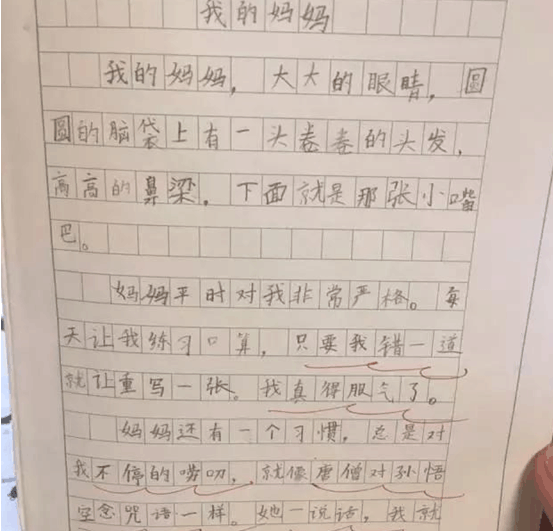 我的妈妈
我的妈妈，大大的眼睛，圆
圆的脑袋上有一头卷卷的头发，
高高的鼻梁，下面就是那张小嘴
巴。
妈妈平时对我非常严格。每
天让我练习口算，只要我错一道
就让重写一张。我真得服气了。
妈妈还有一个习惯，总是对
我不停的唠叨，就像唐僧对孙悟
空念咒语一样。她一说话，我就